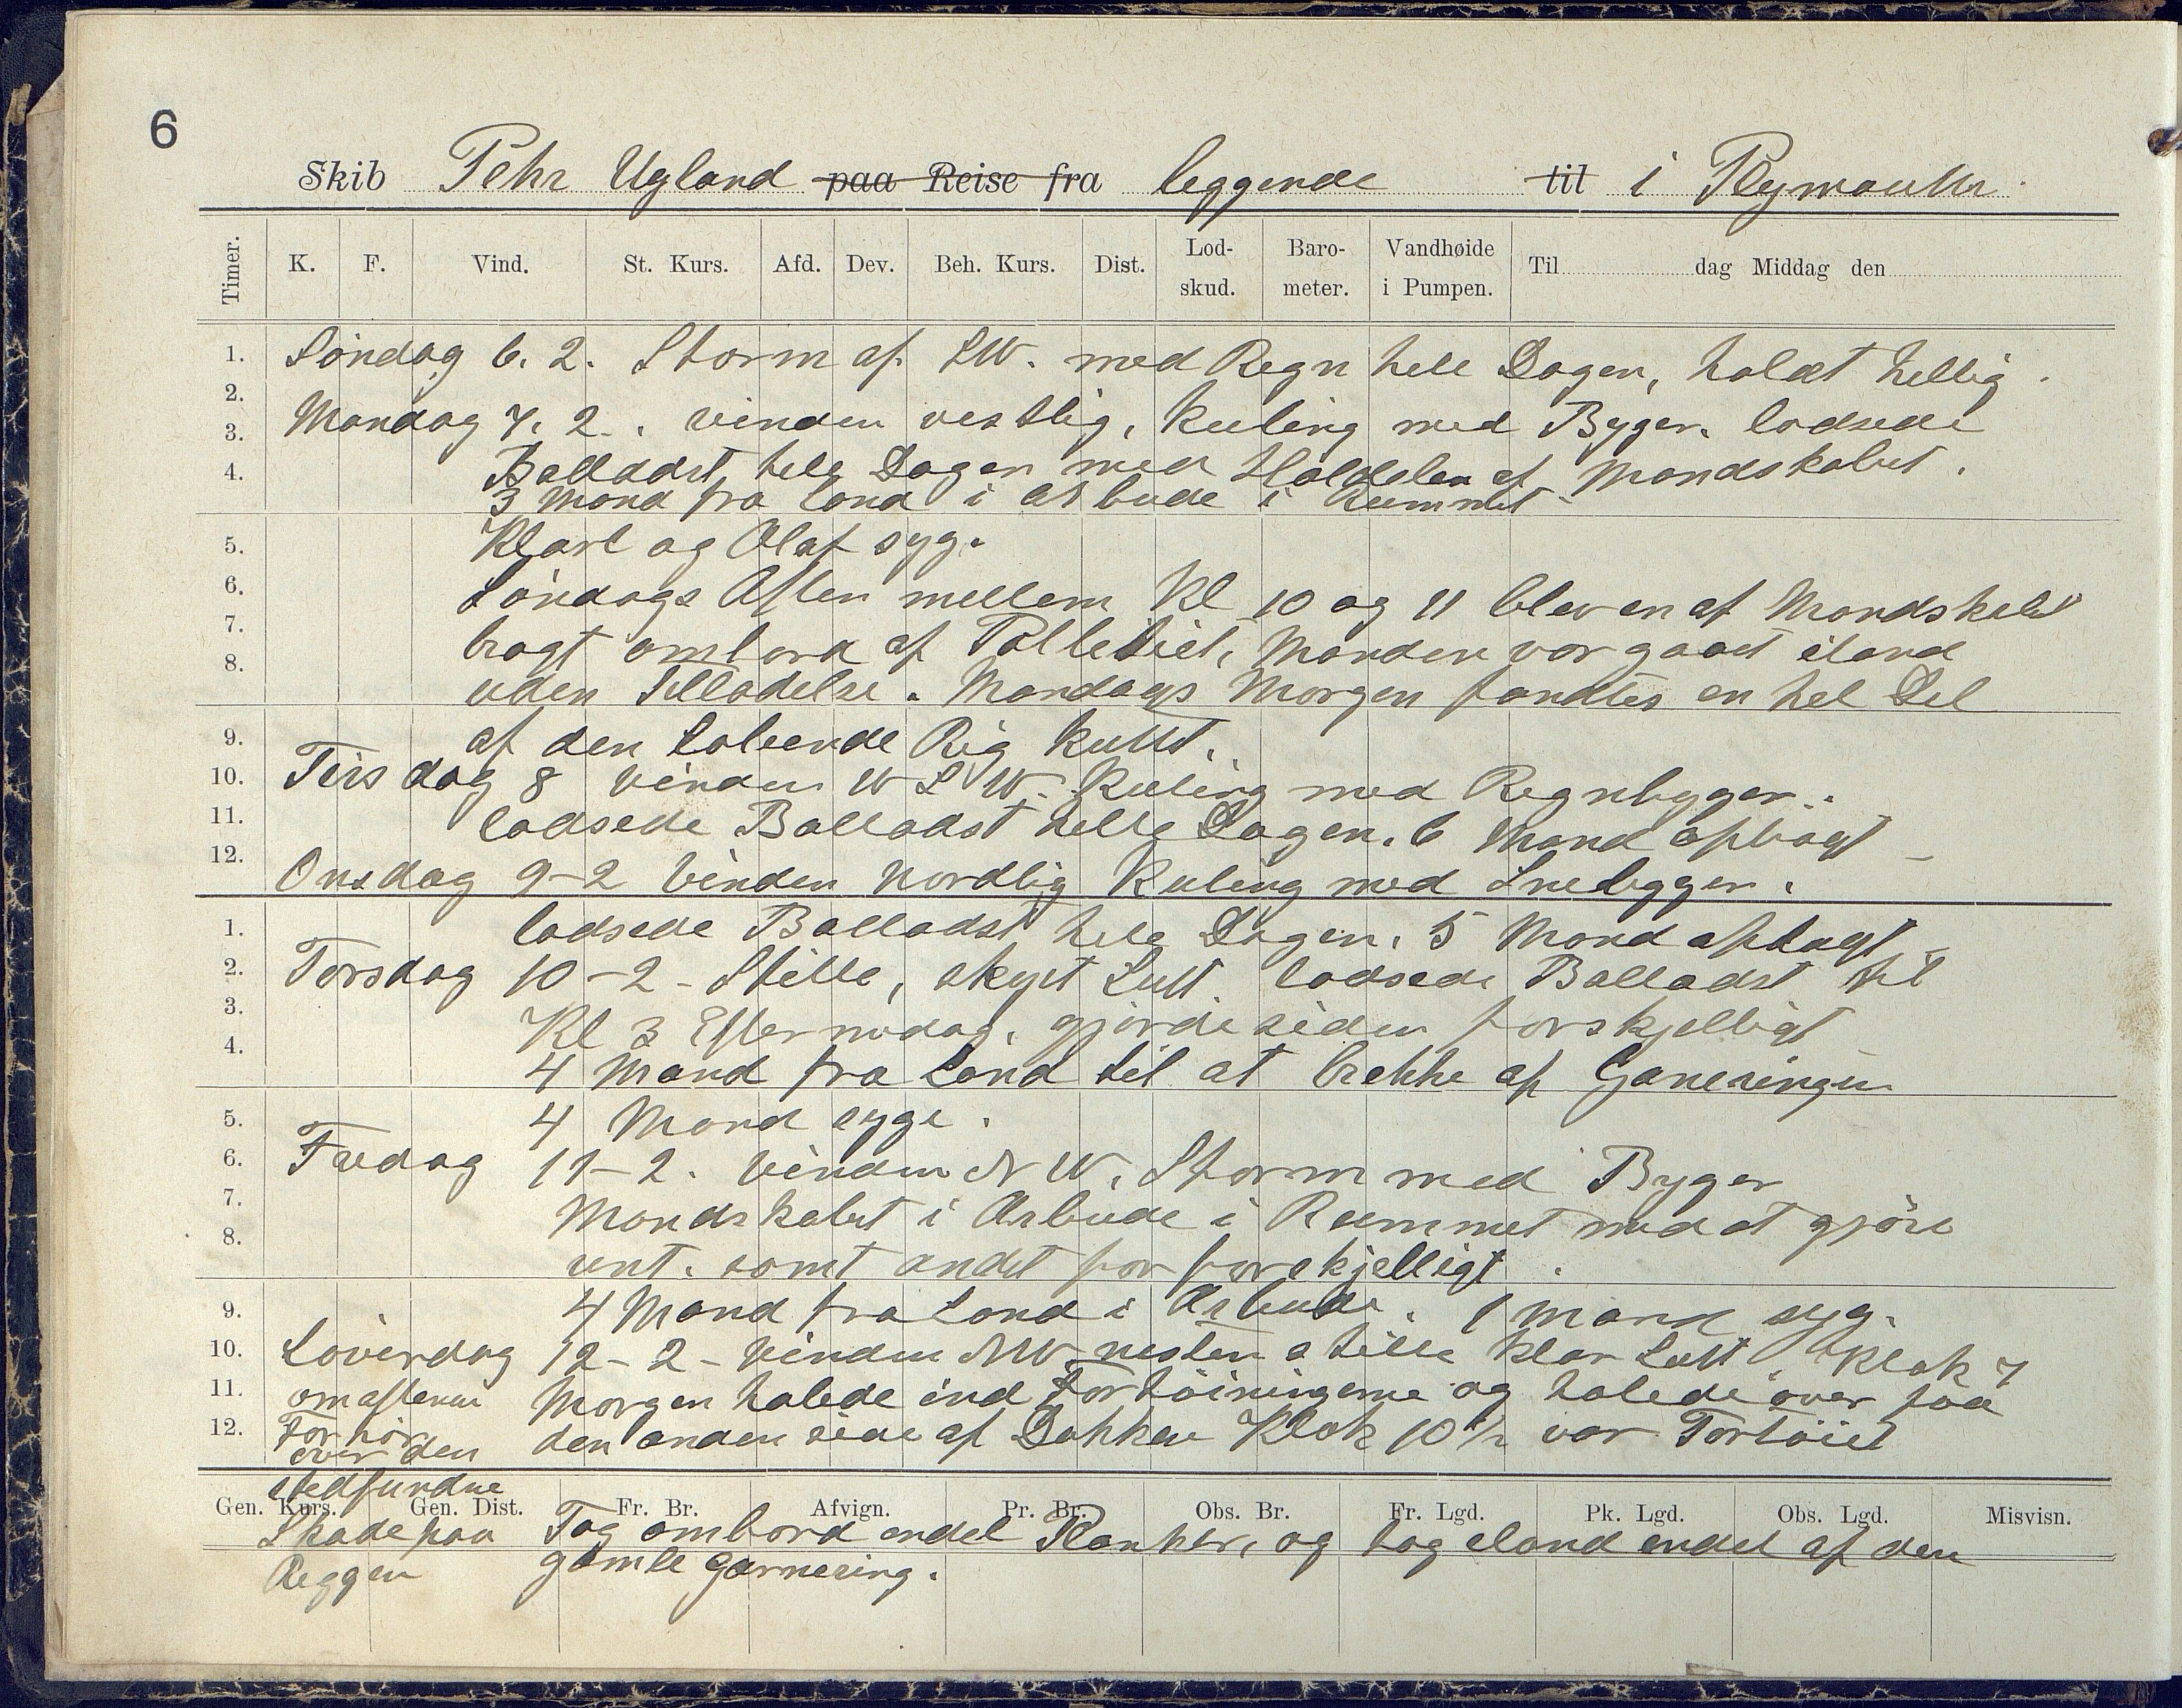 6
Skib Pehr Ugland paa Reise fra leggende til i Plymouth.
Timer. K. F. Vind. St. Kurs. Afd. Dev. Beh. Kurs. Dist. Lod-skud. Baro-meter. Vandhøide i Pumpen. Til dag Middag den
1. Söndag 6. 2. Storm af SW. med Regn hele Dagen, holdt hellig.
2.
3. Mandag 7. 2. . vinden vestlig, kuling med Byger. lodsede
4. Balladst hele Dagen med Haldelen af Mandskabet.
3 Mand fra land i arbeide i Rummet
5. Klarl og Olaf syg.
6. Söndags Aften mellem Kl 10 og 11 blev en af Mandskabet
7. bragt ombord af Politiet, Manden var gaaet iland
8. uden Tilladelse. Mandags Morgen fandtes en hel Del
9. af den Løbende Rig kuttet.
10. Tirsdag 8 Vinden WSW. Kuling med Regnbyger.
11. lodsede Balladst hele Dagen. 6 Mand opbragt
12. Onsdag 9-2 Vinden Nordlig Kuling med Snebygger.
1. lodsede Balladst hele Dagen. 5 Mand
2. Torsdag 10-2- Stille, skyet Luft. lodsede Balladst til
3. Kl 3 Eftermidag, gjorde siden forskjelligt
4. 4 Mand fra Land til at brekke af Ganeringen
5. 4 Mand syge.
6. Fredag 11-2. Vinden NW, Storm med Byger
7. Mandskabet i Arbeide i Rummet med at gjöre
8. rent. samt andet for forskjelligt.
9. 4 Mand fra Land i Arbeide. 1 mand syg.
10. Löverdag 12-2- Vinden NW nesten stille klar Luft, Klok 7
11. om aftenen Morgen halede ind Fortöiningerne og halede over paa
12. Forhör over den den anden side af Dokken Klok 10 1/2 var Fortöiet
stedfundne
Gen. Kurs. Gen. Dist. Fr. Br. Afvign. Pr. Br. Obs. Br. Fr. Lgd. Pk. Lgd. Obs. Lgd. Misvisn.
Skade paa Tog ombord endel Planker, og tog eland endel af den
Reggen gamle Garnering.